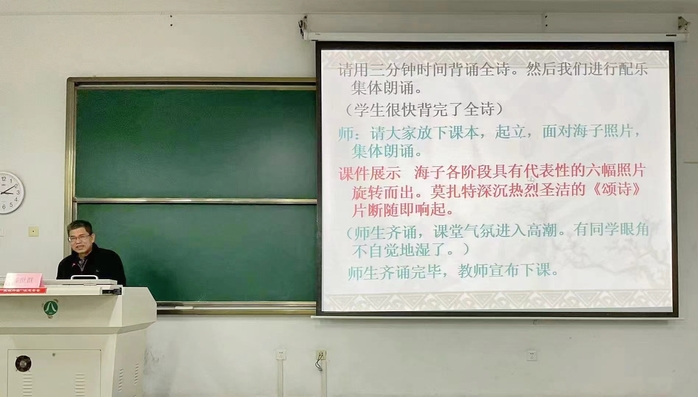 请用三分钟时间背诵全诗。然后我们进行配乐
集体朗诵。
（学生很快背完了全诗）
师：请大家放下课本，起立，面对海子照片，
集体朗诵。
课件展示 海子各阶段具有代表性的六幅照片
旋转而出。莫扎特深沉热烈圣洁的《颂诗》
片断随即响起。
（师生齐诵，课堂气氛进入高潮。有同学眼角
不自觉地湿了。）
师生齐诵完毕，教师宣布下课。